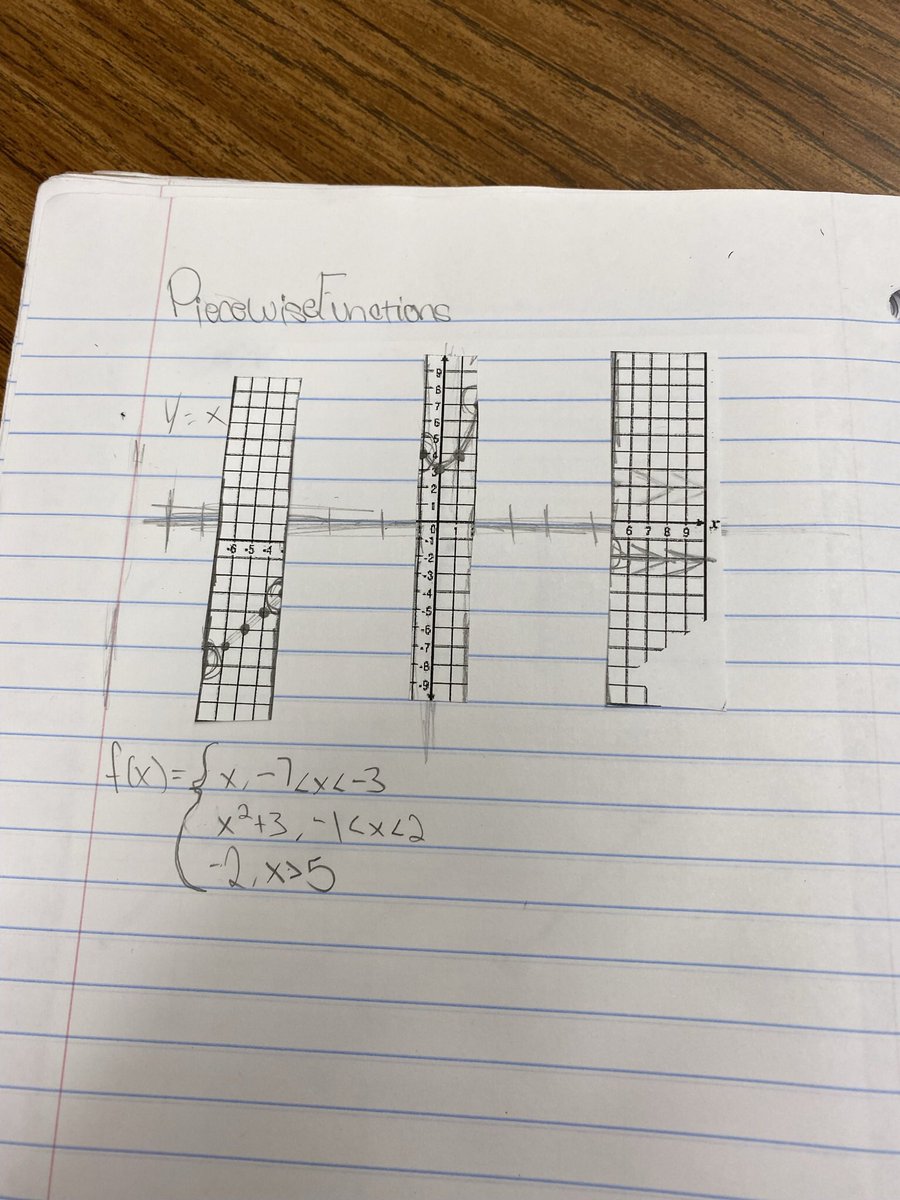 Piecewise Functions
y = x
9
8
7
6
5
4
3
2
1
-6 -5 -4
0 1
6 7 8 9 x
-1
-2
-3
-4
-5
-6
-7
-8
-9
f(x) = { x, -7 < x < -3
x²+3, -1 < x < 2
-2, x > 5